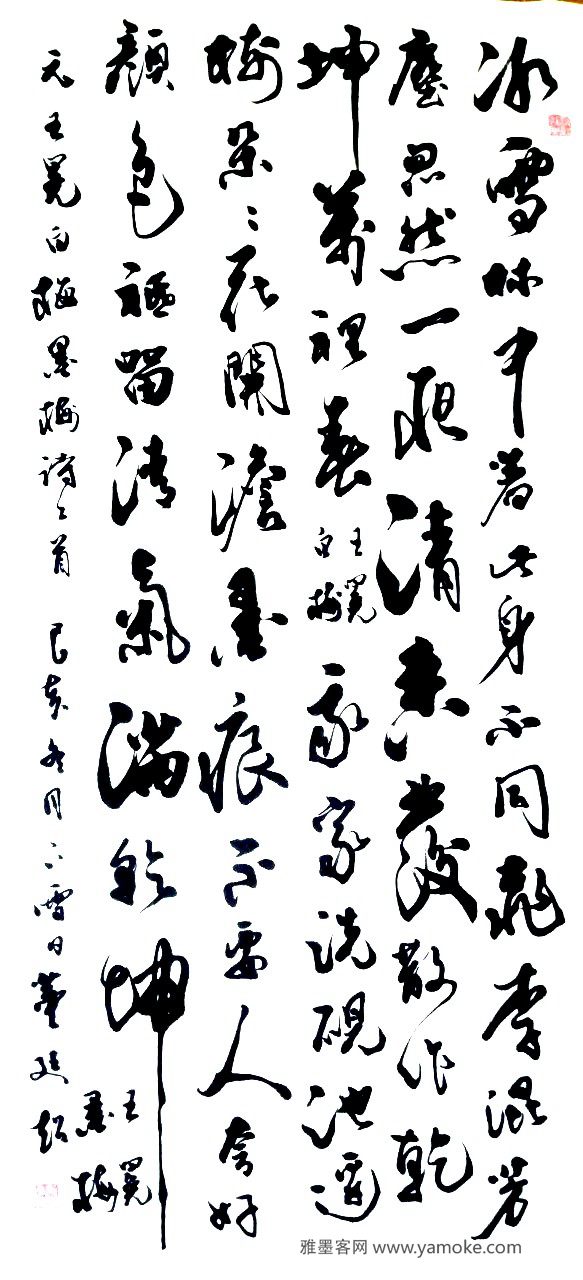 冰雪林中着此身不同桃李混芳
塵忽然一夜清香發散作乾
坤萬裡春
王冕
白梅
我家洗硯池邊
樹朵々花開澹墨痕不要人夸好
顏色祗留清氣滿乾坤
王冕
墨梅
元王冕白梅墨梅詩二首 己亥冬月下雪日董
雅墨客网 www.yamoke.com